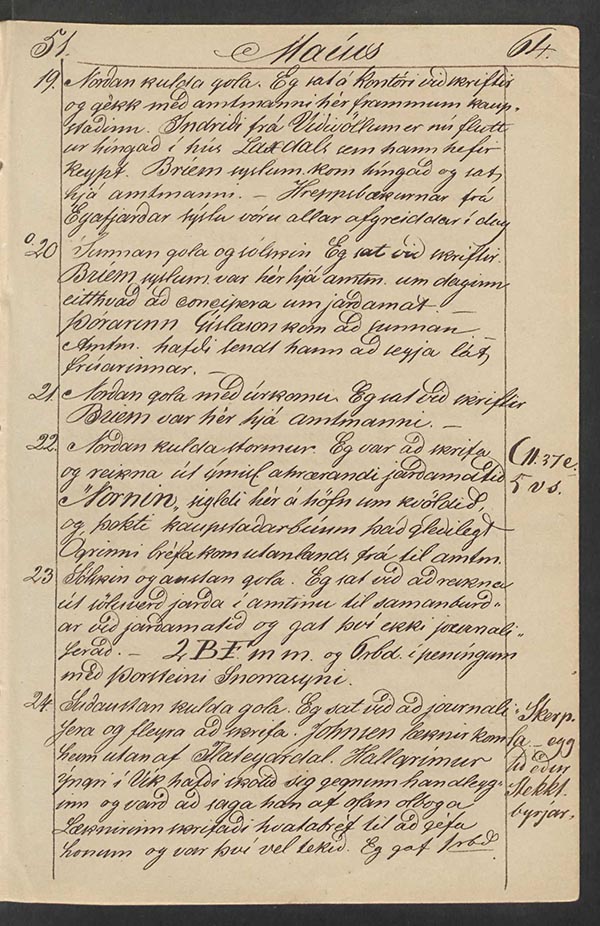 51. Maíus 64.
19. Norðan kulda gola. Eg sat á kontóri við skriftir
og gékk með amtmanni hér frammum kaup-
staðinn. Indriði frá Víðivöllum er nú fluttr
ur híngað í hús Laxdals sem hann hefir
keypt. Briem syslum. kom híngað og sat
hjá amtmanni. – Hreppsbækurnar frá
Eyafjarðar sýslu vóru allar afgreiddar í dag
20 Sunnan gola og sólskin Eg sat við skriftir.
Briem syslum. var hér hjá amtm. um daginn
eitthvað að concipera um jarðamat –
Þórarinn Gíslason kom að sunnan –
Amtm. hafði sendt hann að segja lát
frúarinnar. –
21. Norðan gola með úrkomu. Eg sat við skriftir
Briem var hér hjá amtmanni. –
22. Norðan kulda stormur. Eg var að skrifa
og reikna út ýmisl áhrærandi jarðamatið
"Nornin" sigldi hér á höfn um kvöldið,
og þókti kaupstaðarbúum það gleðilegt
Ógrinni bréfa kom utanlands frá til amtm.
23 Sólskin og austan gola. Eg sat við að reikna
út söluverð jarða í amtinu til samanburð-
ar við jarðamatið og gat því ekki journali-
serað. – 2 BF m m. og 6rbd. í peníngum
með Þorsteini Snorrasyni.
24. Suðaustan kulda gola. Eg sat við að journali-
sera og fleyra að skrifa. Johnsen læknir kom
heim utanaf Flateyardal. Hallgrímur
Yngri í Vík hafði skotið sig gegnum handlegg-
inn og varð að saga han af ofan olboga
Læknirinn skrifaði hvatabréf til að géfa
honum og var því vel tekið. Eg gaf 1rbd
5 vs.
Skerp-
la – egg
tíð eður
Stekkt.
byrjar.